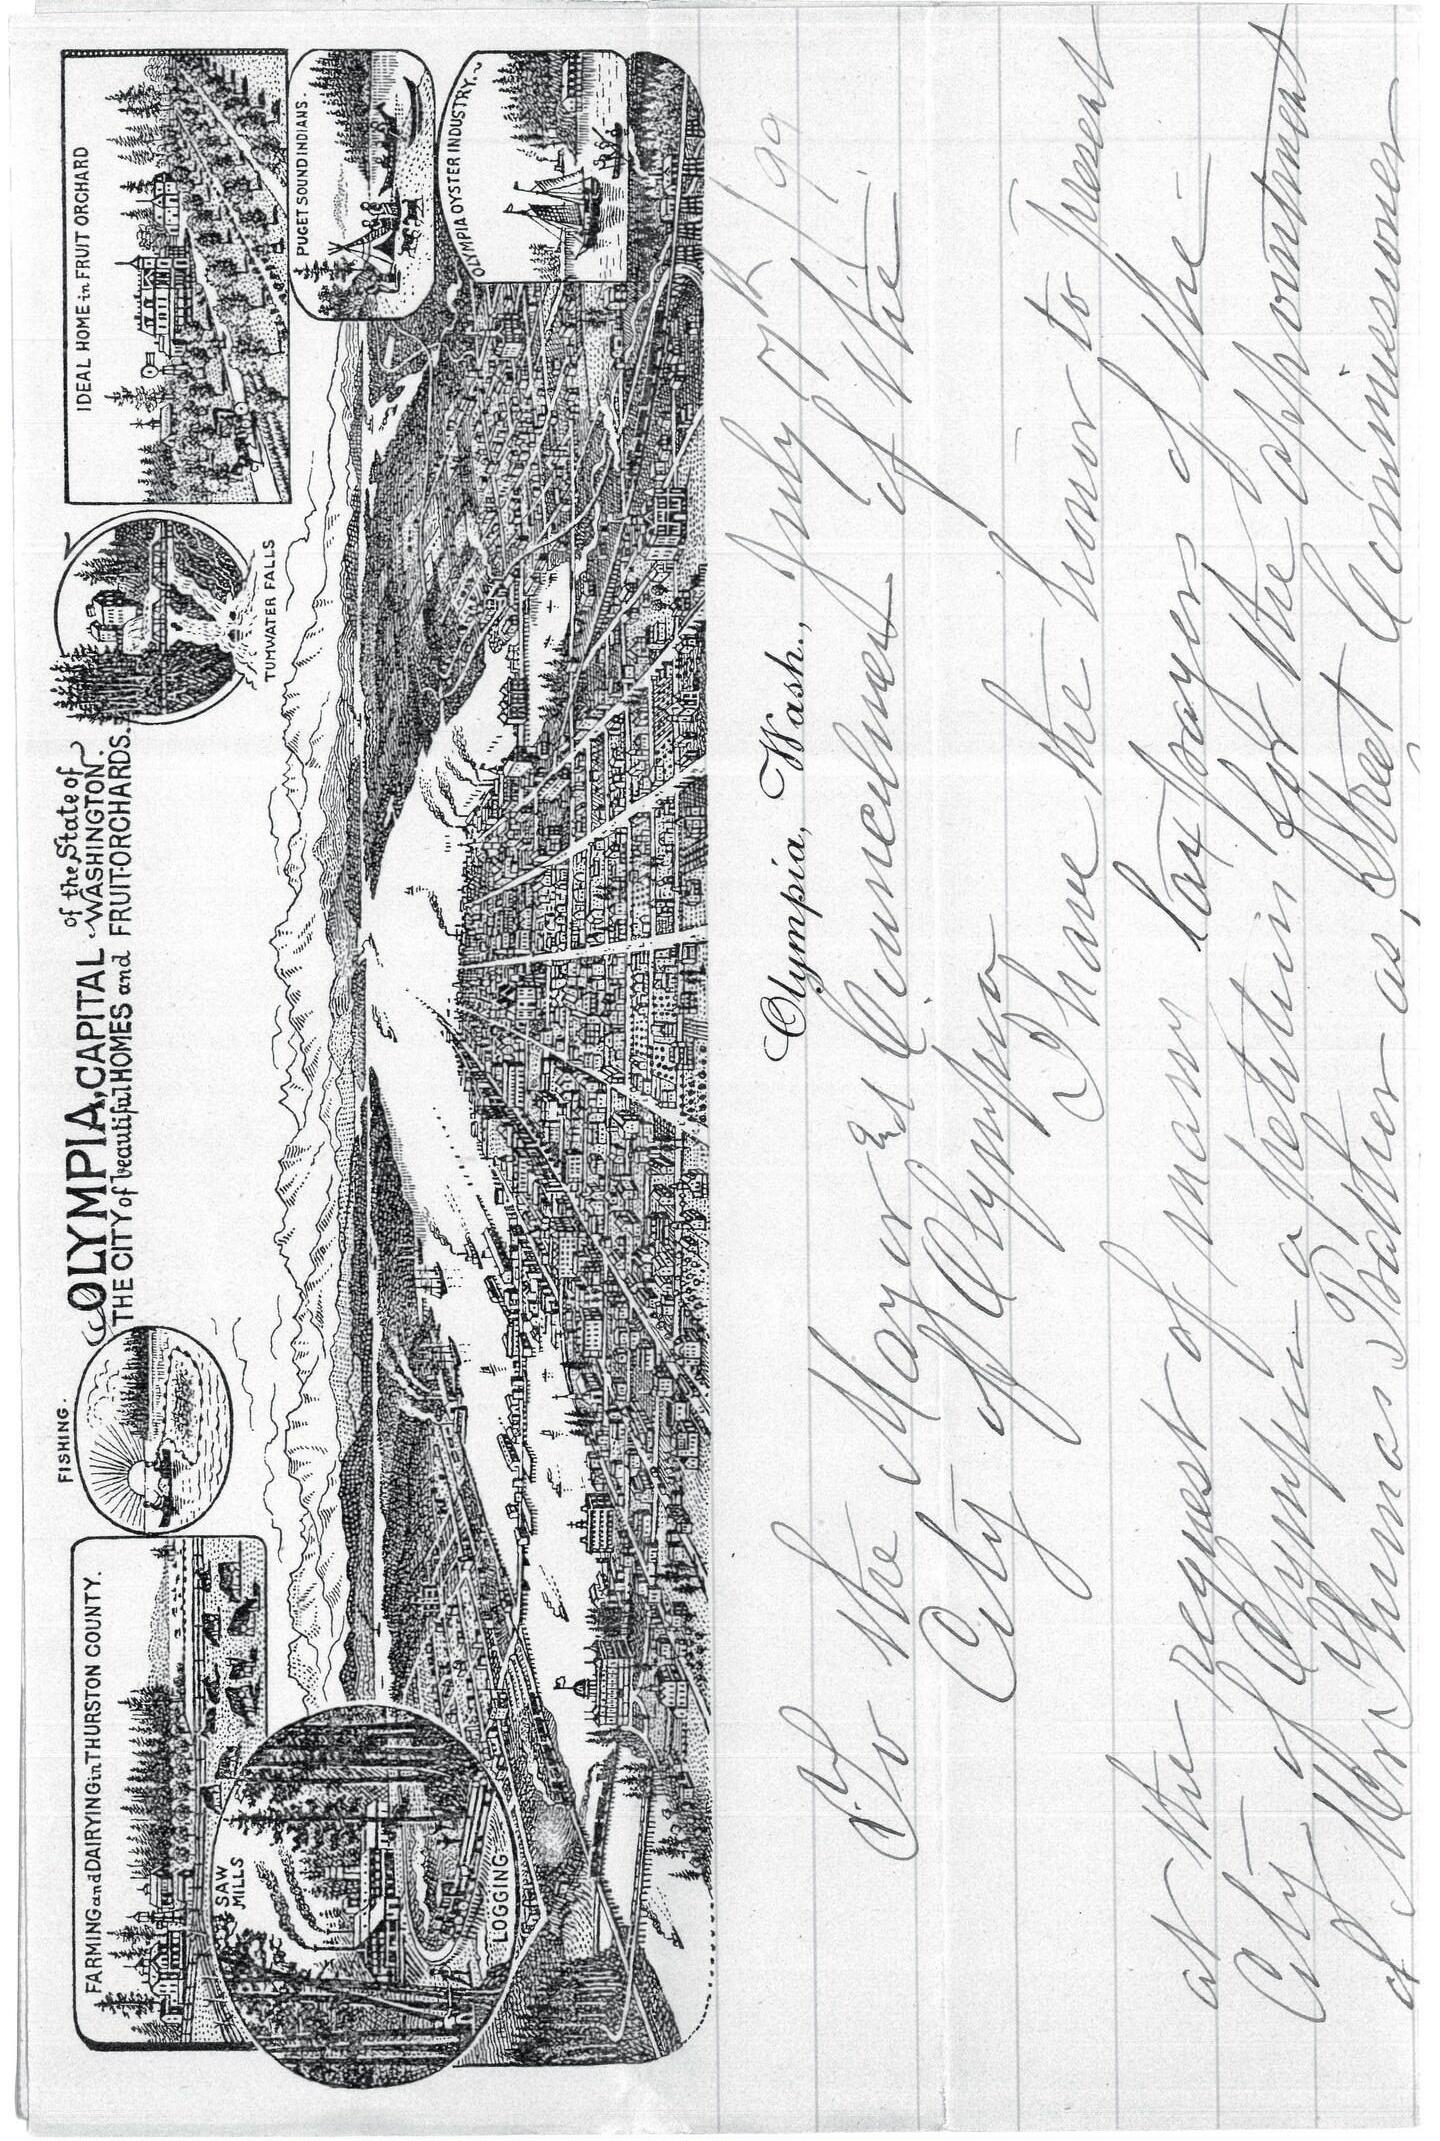 FARMING and DAIRYING in THURSTON COUNTY.
FISHING.
OLYMPIA, CAPITAL of the State of WASHINGTON.
THE CITY of beautiful HOMES and FRUIT-ORCHARDS.
TUMWATER FALLS
IDEAL HOME in FRUIT ORCHARD
SAW MILLS
LOGGING
PUGET SOUND INDIANS
OLYMPIA OYSTER INDUSTRY.
Olympia, Wash., July 7th/99
To the Mayor Ed Councilmen of the
City of Olympia
I have the honor to present
at the request of many tax payers of the
City of Olympia a petition for the appointment
of Mr Thomas as Street Commissioner